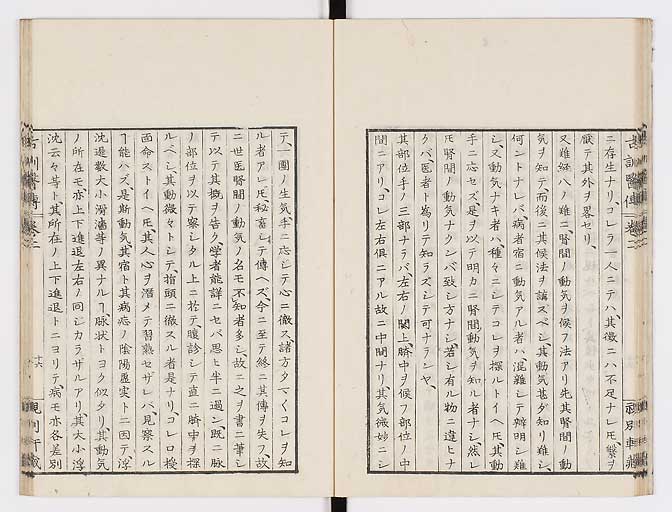 ニ存生ナリコレラ一人ニテハ其徴ニハ不足ナレ𪜈繫ヲ
厭テ其外ヲ畧セリ
又難経八ノ難ニ腎間ノ動気ヲ候フ法アリ先其腎間ノ動
気ヲ知テ而後ニ其候法ヲ講スベシ其動気甚夕知リ難シ
何ントナレバ病者宿ニ動気アル者ハ混雜シテ辨明シ難
シ又動気ナキ者ハ種々ニシテコレヲ探ルトイヘ𪜈其動
手ニ応セズ是ヲ以テ明カニ腎間動気ヲ知ル者ナシ然レ
𪜈腎間ノ動気ナクンバ致シ方ナシ若シ有ル物ニ違ヒナ
クバ医者ト為リテ知ラズシテ可ナランヤ
其部位手ノ三部ナラバ左右ノ関上臍中ヲ候フ部位ノ中
間ニアリコレ左右俱ニアル故ニ中間ナリ其気微妙ニシ
テ一團ノ生気手ニ応シテ心ニ徹ス諸方夕マ〱コレヲ知
ル者アレ𪜈秘蓄シテ傳ヘズ今ニ至テ終ニ其傳ヲ失フ故
ニ世医腎間ノ動気ノ名モ不知者多シ故ニ之ヲ書ニ筆シ
テ以テ其概ヲ告ク学者能詳ニセバ思ヒ半ニ過ン既ニ脈
ノ部位ヲ以テ察シタル上ニ於テ腹診シテ直ニ臍中ヲ探
ルベシ其動微々トシテ指頭ニ徹スル者是ナリコレ口授
面命ストイヘ𪜈其人心ヲ潛メテ習熟セザレバ見察スル
ヿ能ハズ是斯動気其宿ト其病症ノ陰陽虚実トニ因テ浮
沈遲数大小滑濇等ノ異ナルヿ脈状トヨク似タリ其動気
ノ所在モ亦上下進退左右ノ同シカラザルアリ其大小浮
沈云々等ト其所在ノ上下進退トニヨリテ病モ亦各差別